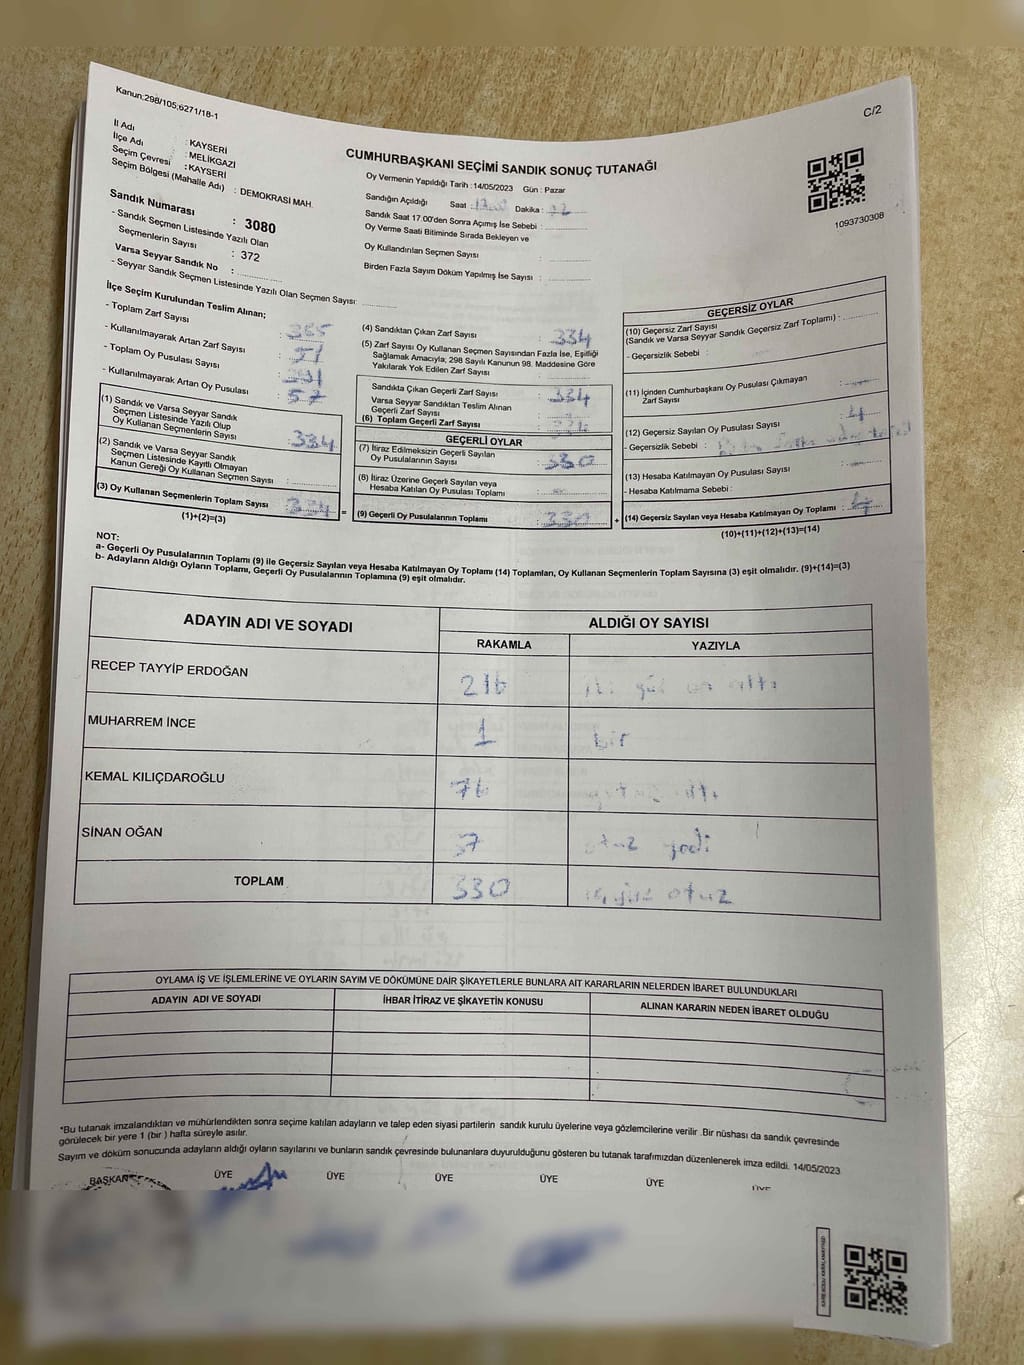 Kanun:298/105;6271/18-1
C/2
İl Adı : KAYSERİ
İlçe Adı : MELİKGAZİ
Seçim Çevresi : KAYSERİ
Seçim Bölgesi (Mahalle Adı) : DEMOKRASİ MAH.
CUMHURBAŞKANI SEÇİMİ SANDIK SONUÇ TUTANAĞI
Oy Vermenin Yapıldığı Tarih : 14/05/2023 Gün : Pazar
Sandığın Açıldığı Saat Dakika :
Sandık Saat 17.00'den Sonra Açılmış İse Sebebi :
Oy Verme Saati Bitiminde Sırada Bekleyen ve
Oy Kullandırılan Seçmen Sayısı :
Birden Fazla Sayım Döküm Yapılmış İse Sayısı :
1093730308
Sandık Numarası : 3080
- Sandık Seçmen Listesinde Yazılı Olan
Seçmenlerin Sayısı : 372
Varsa Seyyar Sandık No :
- Seyyar Sandık Seçmen Listesinde Yazılı Olan Seçmen Sayısı:
İlçe Seçim Kurulundan Teslim Alınan;
- Toplam Zarf Sayısı :
- Kullanılmayarak Artan Zarf Sayısı :
- Toplam Oy Pusulası Sayısı :
- Kullanılmayarak Artan Oy Pusulası : 57
(1) Sandık ve Varsa Seyyar Sandık
Seçmen Listesinde Yazılı Olup
Oy Kullanan Seçmenlerin Sayısı : 334
(2) Sandık ve Varsa Seyyar Sandık
Seçmen Listesinde Kayıtlı Olmayan
Kanun Gereği Oy Kullanan Seçmen Sayısı :
(3) Oy Kullanan Seçmenlerin Toplam Sayısı : 334
(1)+(2)=(3)
(4) Sandıktan Çıkan Zarf Sayısı : 334
(5) Zarf Sayısı Oy Kullanan Seçmen Sayısından Fazla İse, Eşitliği
Sağlamak Amacıyla; 298 Sayılı Kanunun 98. Maddesine Göre
Yakılarak Yok Edilen Zarf Sayısı :
Sandıkta Çıkan Geçerli Zarf Sayısı : 334
Varsa Seyyar Sandıktan Teslim Alınan
Geçerli Zarf Sayısı :
(6) Toplam Geçerli Zarf Sayısı : 334
GEÇERLİ OYLAR
(7) İtiraz Edilmeksizin Geçerli Sayılan
Oy Pusulalarının Sayısı : 330
(8) İtiraz Üzerine Geçerli Sayılan veya
Hesaba Katılan Oy Pusulası Toplamı :
= (9) Geçerli Oy Pusulalarının Toplamı : 330 +
GEÇERSİZ OYLAR
(10) Geçersiz Zarf Sayısı
(Sandık ve Varsa Seyyar Sandık Geçersiz Zarf Toplamı) :
- Geçersizlik Sebebi :
(11) İçinden Cumhurbaşkanı Oy Pusulası Çıkmayan
Zarf Sayısı :
(12) Geçersiz Sayılan Oy Pusulası Sayısı : 4
- Geçersizlik Sebebi :
(13) Hesaba Katılmayan Oy Pusulası Sayısı :
- Hesaba Katılmama Sebebi :
(14) Geçersiz Sayılan veya Hesaba Katılmayan Oy Toplamı : 4
(10)+(11)+(12)+(13)=(14)
NOT:
a- Geçerli Oy Pusulalarının Toplamı (9) ile Geçersiz Sayılan veya Hesaba Katılmayan Oy Toplamı (14) Toplamları, Oy Kullanan Seçmenlerin Toplam Sayısına (3) eşit olmalıdır. (9)+(14)=(3)
b- Adayların Aldığı Oyların Toplamı, Geçerli Oy Pusulalarının Toplamına (9) eşit olmalıdır.
ADAYIN ADI VE SOYADI ALDIĞI OY SAYISI
RAKAMLA YAZIYLA
RECEP TAYYİP ERDOĞAN 216 iki yüz on altı
MUHARREM İNCE 1 bir
KEMAL KILIÇDAROĞLU 76 yetmiş altı
SİNAN OĞAN 37 otuz yedi
TOPLAM 330 üçyüz otuz
OYLAMA İŞ VE İŞLEMLERİNE VE OYLARIN SAYIM VE DÖKÜMÜNE DAİR ŞİKAYETLERLE BUNLARA AİT KARARLARIN NELERDEN İBARET BULUNDUKLARI
ADAYIN ADI VE SOYADI İHBAR İTİRAZ VE ŞİKAYETİN KONUSU ALINAN KARARIN NEDEN İBARET OLDUĞU
*Bu tutanak imzalandıktan ve mühürlendikten sonra seçime katılan adayların ve talep eden siyasi partilerin sandık kurulu üyelerine veya gözlemcilerine verilir .Bir nüshası da sandık çevresinde
görülecek bir yere 1 (bir ) hafta süreyle asılır.
Sayım ve döküm sonucunda adayların aldığı oyların sayılarını ve bunların sandık çevresinde bulunanlara duyurulduğunu gösteren bu tutanak tarafımızdan düzenlenerek imza edildi. 14/05/2023
BAŞKAN ÜYE ÜYE ÜYE ÜYE ÜYE ÜYE